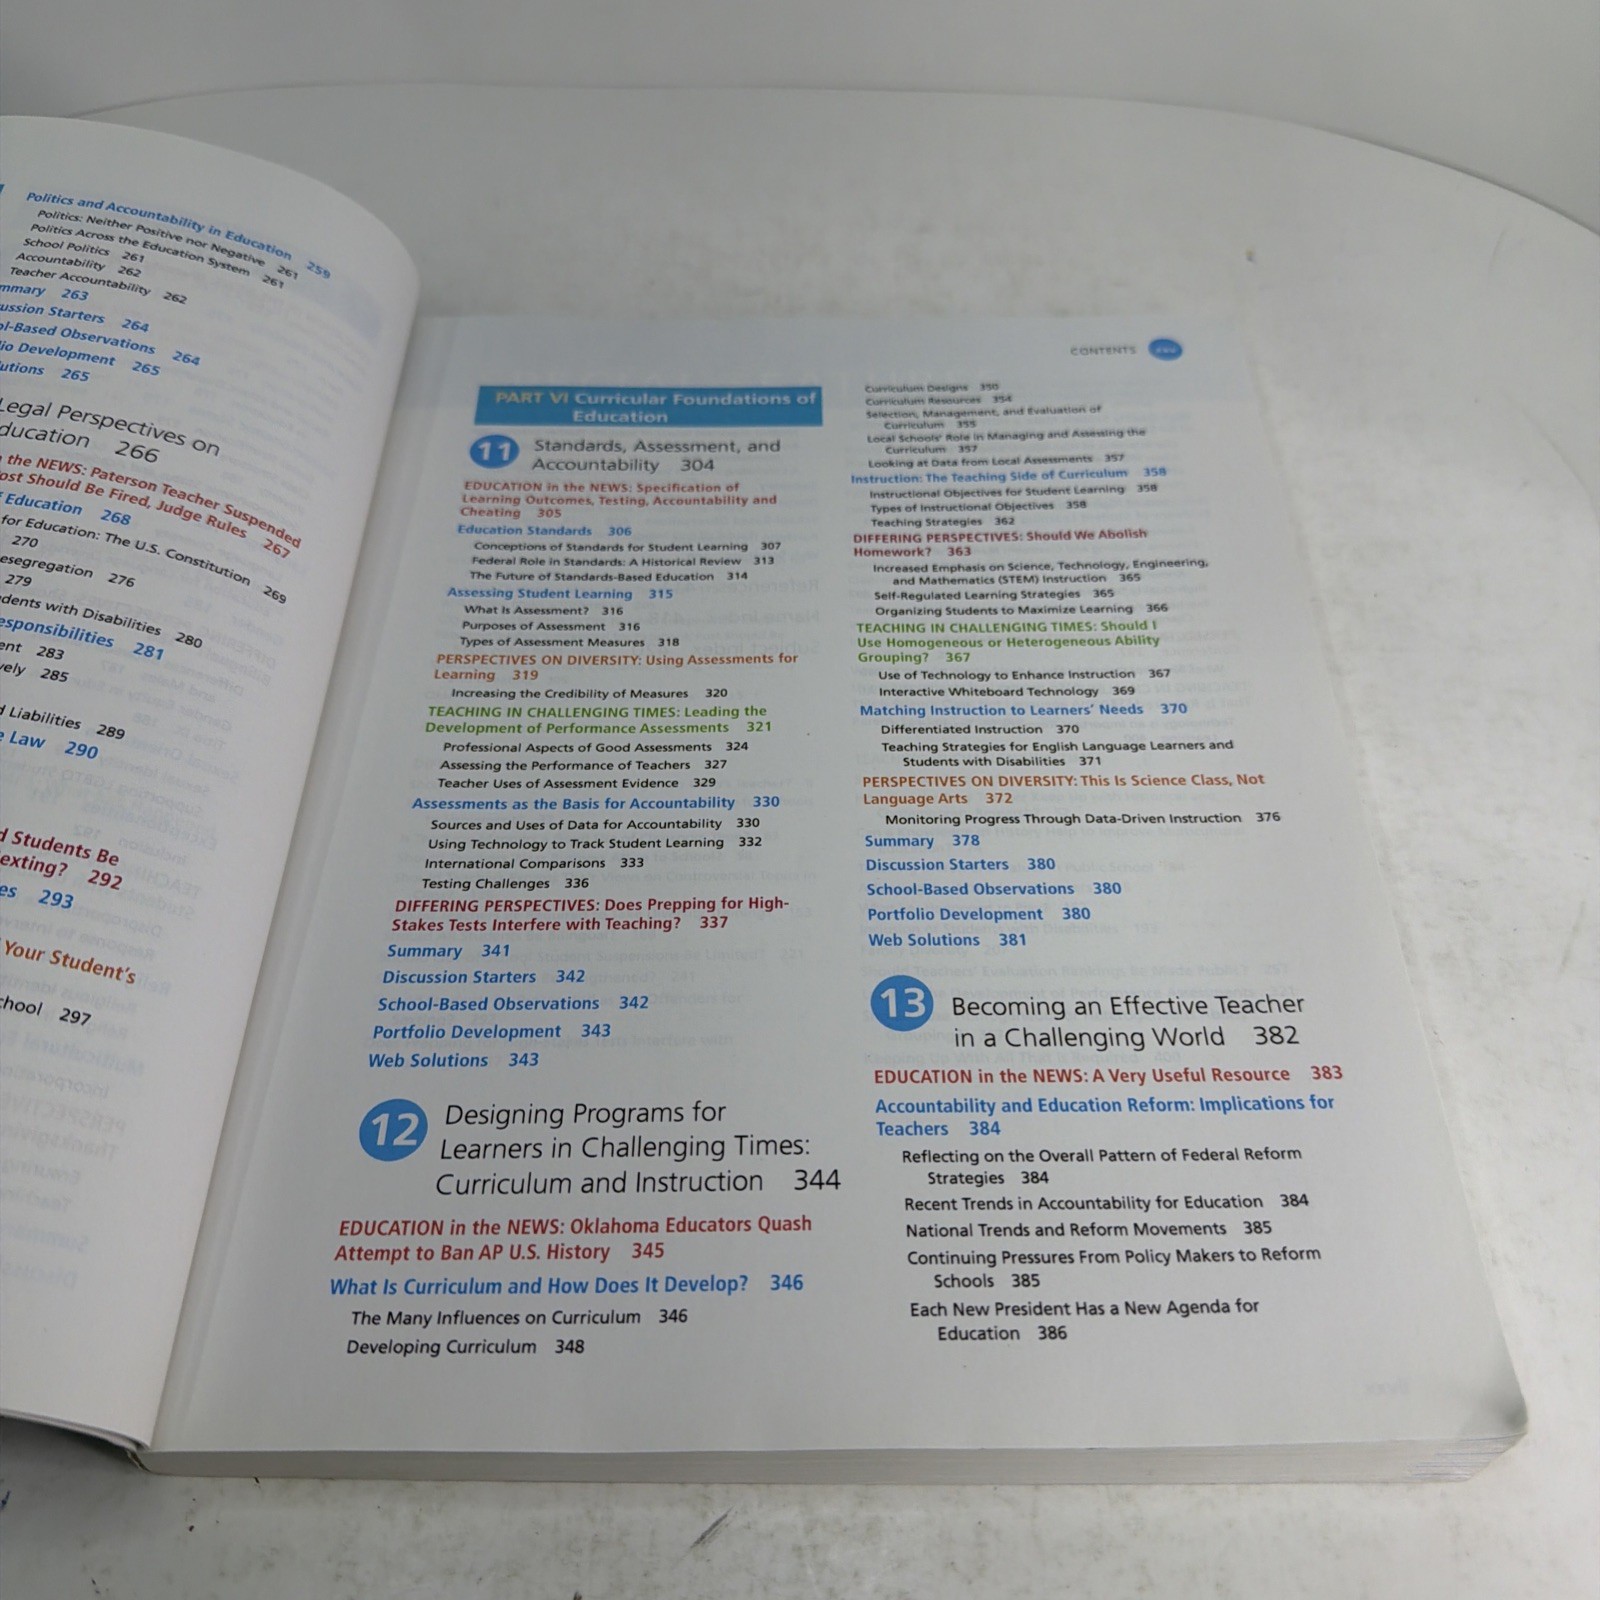 Politics and Accountability in Education 259
Politics: Neither Positive nor Negative 261
Politics Across the Education System 261
School Politics 261
Accountability 262
Teacher Accountability 262
mmary 263
ussion Starters 264
ol-Based Observations 264
io Development 265
utions 265
Legal Perspectives on
ducation 266
the NEWS: Paterson Teacher Suspended
ost Should Be Fired, Judge Rules 267
f Education 268
for Education: The U.S. Constitution 269
270
esegregation 276
279
dents with Disabilities 280
esponsibilities 281
ent 283
vely 285
d Liabilities 289
e Law 290
d Students Be
exting? 292
es 293
Your Student's
chool 297
CONTENTS
PART VI Curricular Foundations of
Education
11 Standards, Assessment, and
Accountability 304
EDUCATION in the NEWS: Specification of
Learning Outcomes, Testing, Accountability and
Cheating 305
Education Standards 306
Conceptions of Standards for Student Learning 307
Federal Role in Standards: A Historical Review 313
The Future of Standards-Based Education 314
Assessing Student Learning 315
What Is Assessment? 316
Purposes of Assessment 316
Types of Assessment Measures 318
PERSPECTIVES ON DIVERSITY: Using Assessments for
Learning 319
Increasing the Credibility of Measures 320
TEACHING IN CHALLENGING TIMES: Leading the
Development of Performance Assessments 321
Professional Aspects of Good Assessments 324
Assessing the Performance of Teachers 327
Teacher Uses of Assessment Evidence 329
Assessments as the Basis for Accountability 330
Sources and Uses of Data for Accountability 330
Using Technology to Track Student Learning 332
International Comparisons 333
Testing Challenges 336
DIFFERING PERSPECTIVES: Does Prepping for High-
Stakes Tests Interfere with Teaching? 337
Summary 341
Discussion Starters 342
School-Based Observations 342
Portfolio Development 343
Web Solutions 343
12 Designing Programs for
Learners in Challenging Times:
Curriculum and Instruction 344
EDUCATION in the NEWS: Oklahoma Educators Quash
Attempt to Ban AP U.S. History 345
What Is Curriculum and How Does It Develop? 346
The Many Influences on Curriculum 346
Developing Curriculum 348
Curriculum Designs 350
Curriculum Resources 354
Selection, Management, and Evaluation of
Curriculum 355
Local Schools' Role in Managing and Assessing the
Curriculum 357
Looking at Data from Local Assessments 357
Instruction: The Teaching Side of Curriculum 358
Instructional Objectives for Student Learning 358
Types of Instructional Objectives 358
Teaching Strategies 362
DIFFERING PERSPECTIVES: Should We Abolish
Homework? 363
Increased Emphasis on Science, Technology, Engineering,
and Mathematics (STEM) Instruction 365
Self-Regulated Learning Strategies 365
Organizing Students to Maximize Learning 366
TEACHING IN CHALLENGING TIMES: Should I
Use Homogeneous or Heterogeneous Ability
Grouping? 367
Use of Technology to Enhance Instruction 367
Interactive Whiteboard Technology 369
Matching Instruction to Learners' Needs 370
Differentiated Instruction 370
Teaching Strategies for English Language Learners and
Students with Disabilities 371
PERSPECTIVES ON DIVERSITY: This Is Science Class, Not
Language Arts 372
Monitoring Progress Through Data-Driven Instruction 376
Summary 378
Discussion Starters 380
School-Based Observations 380
Portfolio Development 380
Web Solutions 381
13 Becoming an Effective Teacher
in a Challenging World 382
EDUCATION in the NEWS: A Very Useful Resource 383
Accountability and Education Reform: Implications for
Teachers 384
Reflecting on the Overall Pattern of Federal Reform
Strategies 384
Recent Trends in Accountability for Education 384
National Trends and Reform Movements 385
Continuing Pressures From Policy Makers to Reform
Schools 385
Each New President Has a New Agenda for
Education 386